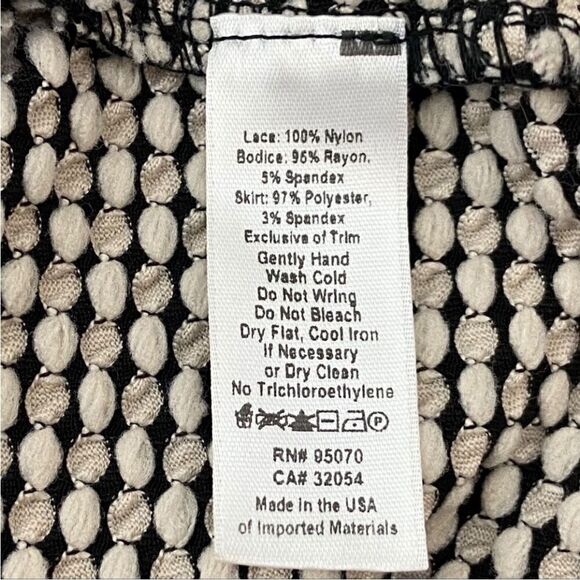 Lace: 100% Nylon
Bodice: 95% Rayon,
5% Spandex
Skirt: 97% Polyester,
3% Spandex
Exclusive of Trim
Gently Hand
Wash Cold
Do Not Wring
Do Not Bleach
Dry Flat, Cool Iron
If Necessary
or Dry Clean
No Trichloroethylene
P
RN# 95070
CA# 32054
Made in the USA
of Imported Materials